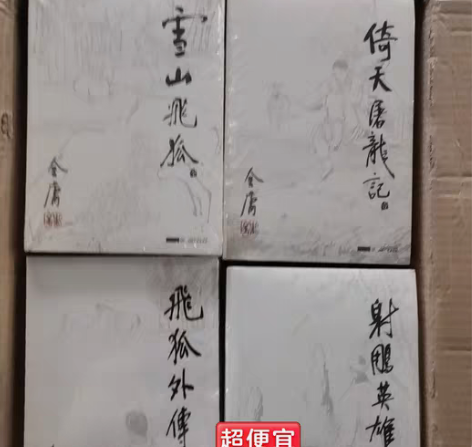 雪山飛狐
金庸
倚天屠龍記
金庸
飛狐外傳
射鵰英雄
超便宜